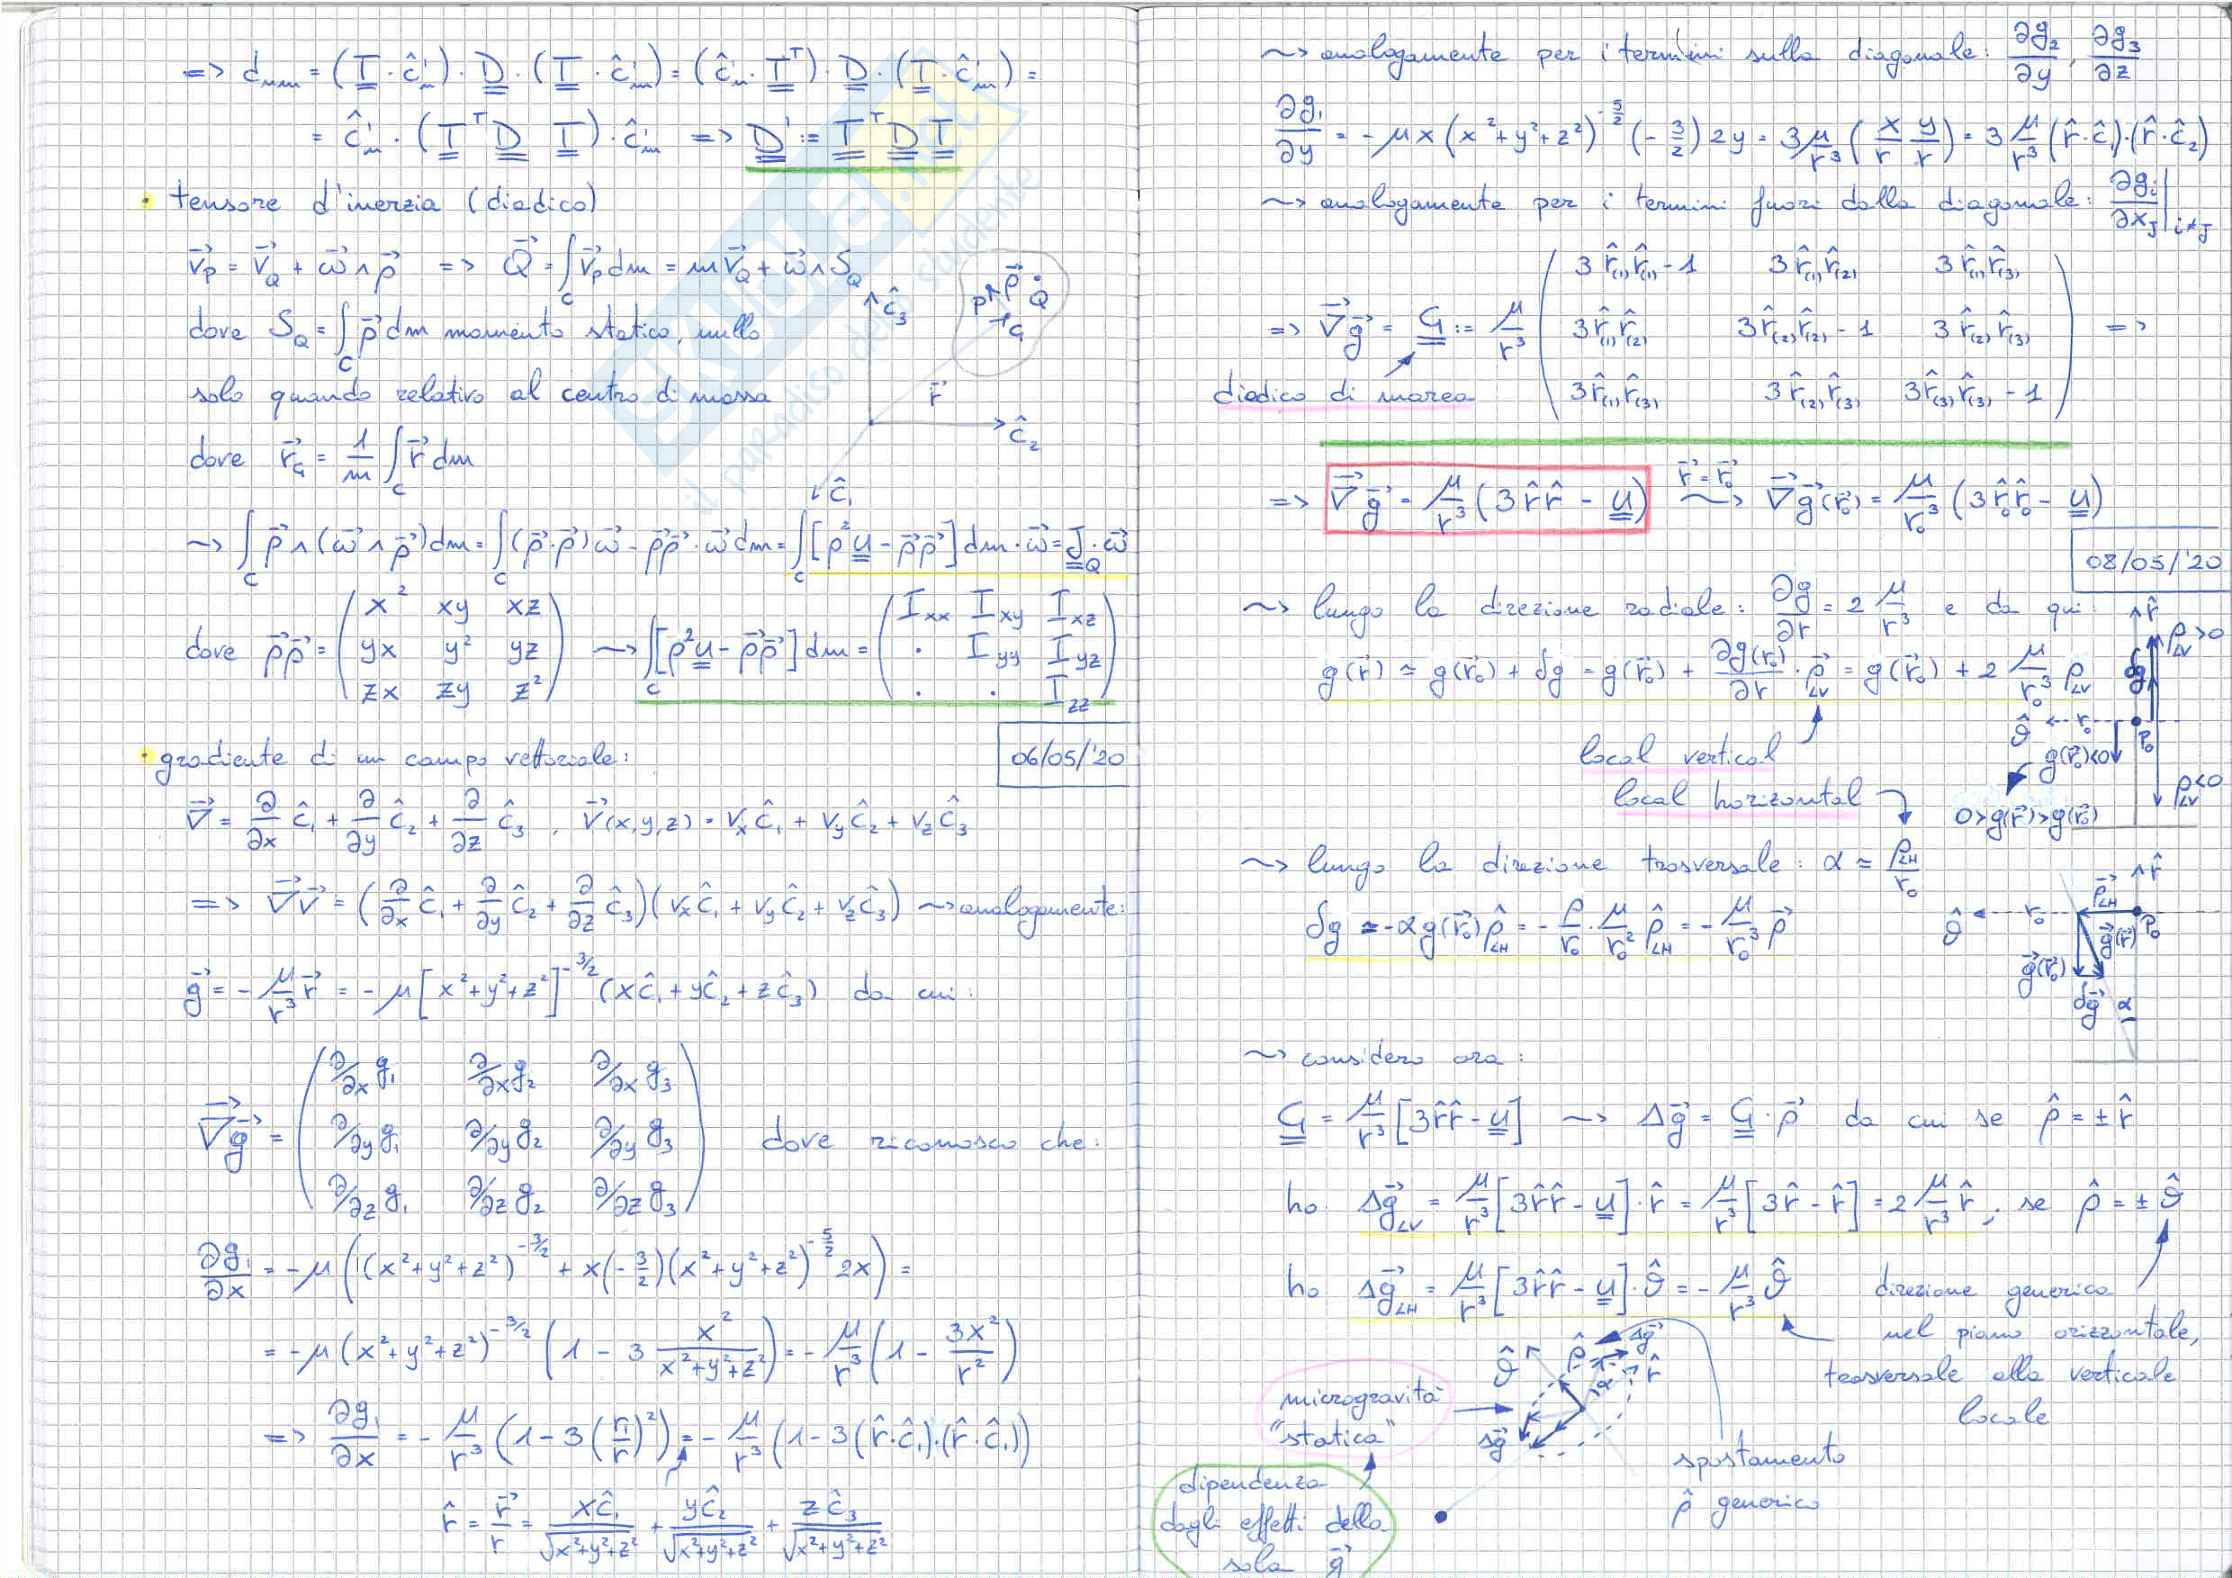 => d_nm = (T · ĉ'_n) · D · (T · ĉ'_m) = (ĉ'_n · T^T) · D · (T · ĉ'_m) =
= ĉ'_n · (T^T D T) · ĉ'_m => D' := T^T D T
• tensore d'inerzia (diadico)
v⃗_P = v⃗_Q + ω⃗ ∧ ρ⃗ => Q⃗ = ∫_C v⃗_P dm = m v⃗_Q + ω⃗ ∧ S_Q
dove S_Q = ∫_C ρ⃗ dm momento statico, nullo
solo quando relativo al centro di massa
dove r⃗_G = 1/m ∫_C r⃗ dm
ĉ_3
P ρ⃗ Q
G
r⃗
ĉ_2
ĉ_1
~> ∫_C ρ⃗ ∧ (ω⃗ ∧ ρ⃗) dm = ∫_C (ρ⃗ · ρ⃗) ω⃗ - ρ⃗ρ⃗ · ω⃗ dm = ∫_C [ρ² u - ρ⃗ρ⃗] dm · ω⃗ = J_Q · ω⃗
dove ρ⃗ρ⃗ = ( x² xy xz
yx y² yz
zx zy z² ) ~> ∫_C [ρ² u - ρ⃗ρ⃗] dm = ( I_xx I_xy I_xz
· I_yy I_yz
· · I_zz )
06/05/'20
• gradiente di un campo vettoriale:
∇⃗ = ∂/∂x ĉ_1 + ∂/∂y ĉ_2 + ∂/∂z ĉ_3 , v⃗(x,y,z) = v_x ĉ_1 + v_y ĉ_2 + v_z ĉ_3
=> ∇⃗v⃗ = (∂/∂x ĉ_1 + ∂/∂y ĉ_2 + ∂/∂z ĉ_3)(v_x ĉ_1 + v_y ĉ_2 + v_z ĉ_3) ~> analogamente:
g⃗ = - μ/r³ r⃗ = - μ [x²+y²+z²]^(-3/2) (x ĉ_1 + y ĉ_2 + z ĉ_3) da cui:
∇⃗g⃗ = ( ∂/∂x g_1 ∂/∂x g_2 ∂/∂x g_3
∂/∂y g_1 ∂/∂y g_2 ∂/∂y g_3 dove riconosco che:
∂/∂z g_1 ∂/∂z g_2 ∂/∂z g_3 )
∂g_1/∂x = - μ ((x²+y²+z²)^(-3/2) + x(-3/2)(x²+y²+z²)^(-5/2) 2x) =
= - μ (x²+y²+z²)^(-3/2) (1 - 3 x²/(x²+y²+z²)) = - μ/r³ (1 - 3x²/r²)
=> ∂g_1/∂x = - μ/r³ (1 - 3 (r_1/r)²) = - μ/r³ (1 - 3 (r̂ · ĉ_1) · (r̂ · ĉ_1))
r̂ = r⃗/r = xĉ_1/√(x²+y²+z²) + yĉ_2/√(x²+y²+z²) + zĉ_3/√(x²+y²+z²)
~> analogamente per i termini sulla diagonale: ∂g_2/∂y , ∂g_3/∂z
∂g_1/∂y = - μ x (x²+y²+z²)^(-5/2) (-3/2) 2y = 3 μ/r³ (x/r y/r) = 3 μ/r³ (r̂ · ĉ_1) · (r̂ · ĉ_2)
~> analogamente per i termini fuori dalla diagonale: ∂g_i/∂x_j |_i≠j
=> ∇⃗g⃗ = G := μ/r³ ( 3 r̂_(1) r̂_(1) - 1 3 r̂_(1) r̂_(2) 3 r̂_(1) r̂_(3)
3 r̂_(1) r̂_(2) 3 r̂_(2) r̂_(2) - 1 3 r̂_(2) r̂_(3) =>
3 r̂_(1) r̂_(3) 3 r̂_(2) r̂_(3) 3 r̂_(3) r̂_(3) - 1 )
diadico di marea
=> ∇⃗g⃗ = μ/r³ (3 r̂r̂ - u) r⃗ = r⃗_0 ~> ∇⃗g⃗(r⃗_0) = μ/r_0³ (3 r̂_0 r̂_0 - u)
08/05/'20
~> lungo la direzione radiale: ∂g/∂r = 2 μ/r³ e da qui:
g(r⃗) ≃ g(r⃗_0) + δg = g(r⃗_0) + ∂g(r⃗_0)/∂r · ρ⃗_LV = g(r⃗_0) + 2 μ/r_0³ ρ_LV
local vertical
local horizontal
r̂
ρ_LV > 0
δg
ϑ̂ r_0 P_0
g(r⃗_0) < 0
ρ_LV < 0
0 > g(r⃗) > g(r⃗_0)
~> lungo la direzione trasversale: α ≃ ρ_LH/r_0
δg ≃ - α g(r⃗_0) ρ̂_LH = - ρ/r_0 · μ/r_0² ρ̂_LH = - μ/r_0³ ρ⃗
r̂
ρ⃗_LH
ϑ̂ r_0 P_0
g⃗(r⃗)
g⃗(r⃗_0)
δg⃗ α
~> considero ora:
G = μ/r³ [3 r̂r̂ - u] ~> Δg⃗ = G · ρ⃗ da cui se ρ̂ = ± r̂
ho Δg⃗_LV = μ/r³ [3 r̂r̂ - u] · r̂ = μ/r³ [3 r̂ - r̂] = 2 μ/r³ r̂ ; se ρ̂ = ± ϑ̂
ho Δg⃗_LH = μ/r³ [3 r̂r̂ - u] · ϑ̂ = - μ/r³ ϑ̂ direzione generica
nel piano orizzontale,
trasversale alla verticale
locale
ϑ̂ ρ̂ Δg⃗
α r̂
Δg⃗
microgravità
"statica"
dipendenza
dagli effetti della
sola g⃗
spostamento
ρ̂ generico
il paradiso dello studente